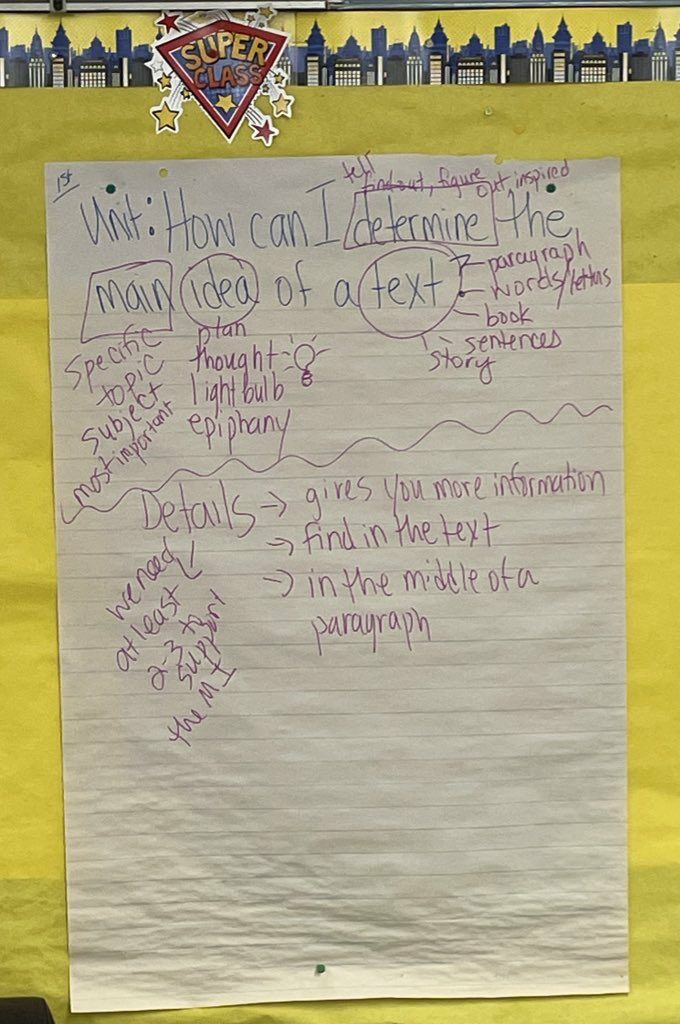 SUPER
CLASS
1st
tell
find out, figure out, inspired
Unit: How can I determine the
main idea of a text
paragraph
words/letters
book
sentences
story
specific
topic
subject
most important
plan
thought
lightbulb
epiphany
Details → gives you more information
→ find in the text
→ in the middle of a
paragraph
we need
at least
2-3 to
support
the MI